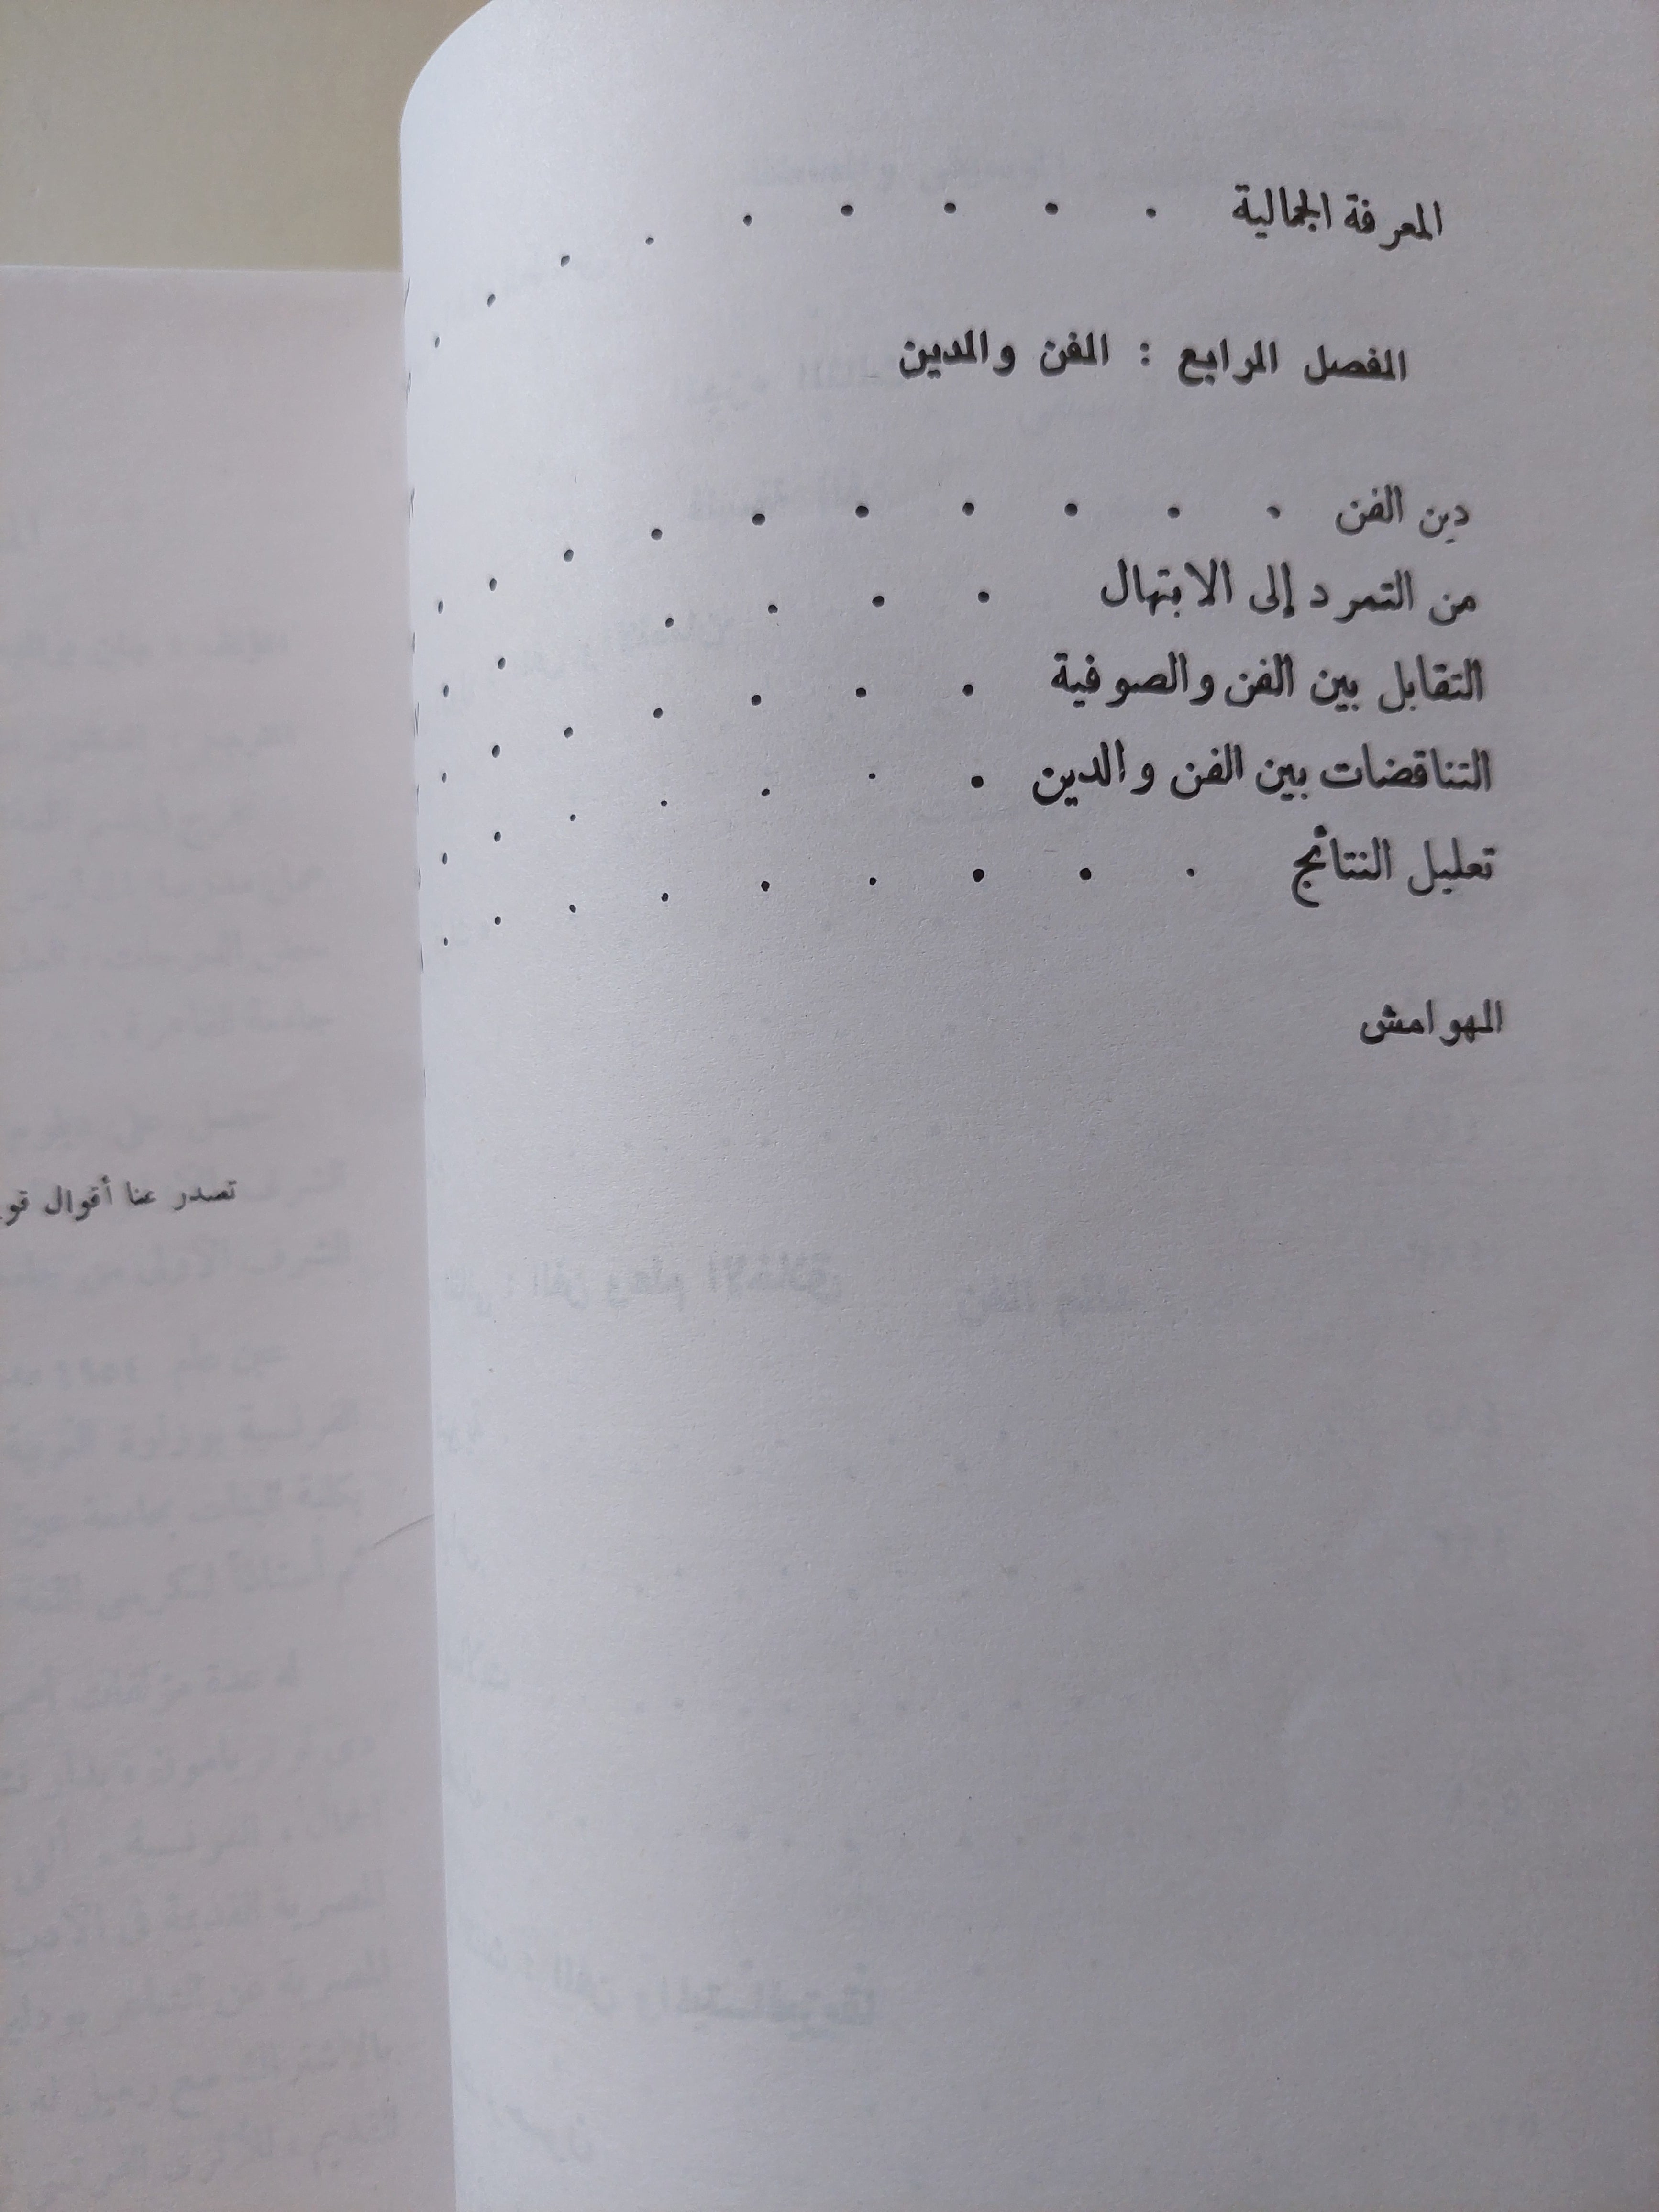 المعرفة الجمالية . . . . . . . . . .
الفصل الرابع : الفن والدين
دين الفن . . . . . . . . . .
من التمرد إلى الابتهال . . . . . .
التقابل بين الفن والصوفية . . . . . . .
التناقضات بين الفن والدين . . . . . . .
تعليل النتائج . . . . . . . . .
الهوامش
تصدر عنا أقوال